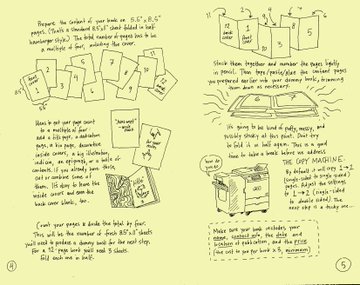 Prepare the content of your book on 5.5" x 8.5"
pages. (That's a standard 8.5"x11" sheet folded in half
hamburger style.) The total number of pages has to be
a multiple of four, including the cover.
Ideas to get your page count
to a multiple of four:
add a title page, a dedication
page, a bio page, decorative
inside covers, a big illustration,
indicia, an epigraph, or a table of
contents. If you already have these,
cut or combine some of
them. It's okay to leave the
inside cover, and even the
back cover blank, too.
Count your pages & divide the total by four.
This will be the number of fresh 8.5"x11" sheets
you'll need to produce a dummy book for the next step.
For a 12-page book you'll need 3 sheets.
Fold each one in half.
4
11
12
back
cover
front
cover
10
3
8
5
Stack them together and number the pages lightly
in pencil. Then tape/paste/glue the content pages
you prepared earlier into your dummy book, trimming
them down as necessary.
It's going to be kind of puffy, messy, and
possibly sticky at this point. Don't try
to fold it in half again. This is a good
time to take a break before we address...
THE COPY MACHINE.
By default it will copy 1→1
(single-sided to single-sided)
pages. Adjust the settings
to 1→2 (single-sided
to double sided). The
next step is a tricky one...
Make sure your book includes your
name, contact info, the date and
location of publication, and the price
(the cost to you per book x 3, minimum)
5